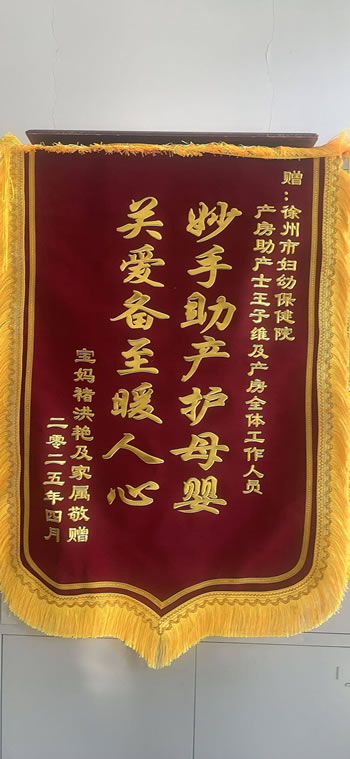 赠：徐州市妇幼保健院
产房助产士王子维及产房全体工作人员
妙手助产护母婴
关爱备至暖人心
宝妈褚洪艳及家属敬赠
二零二五年四月